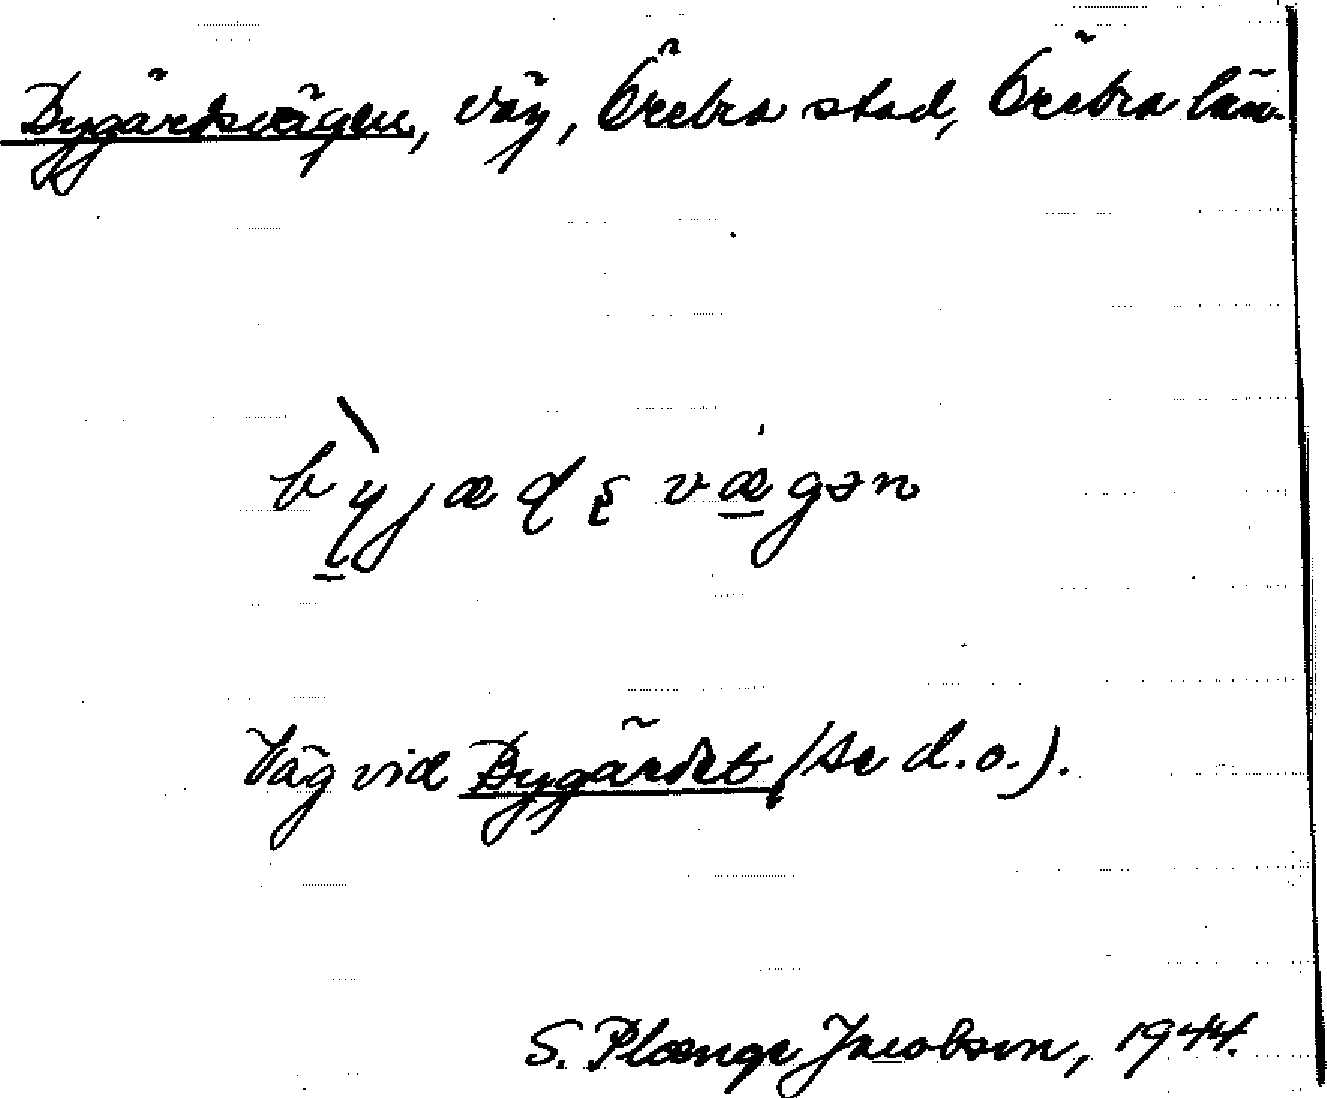 Bygärdsvägen, väg, Örebro stad, Örebro län.
bỳjæḍṣvægən
Väg vid Bygärdet (se d.o.).
S. Plænge Jacobson, 1944.